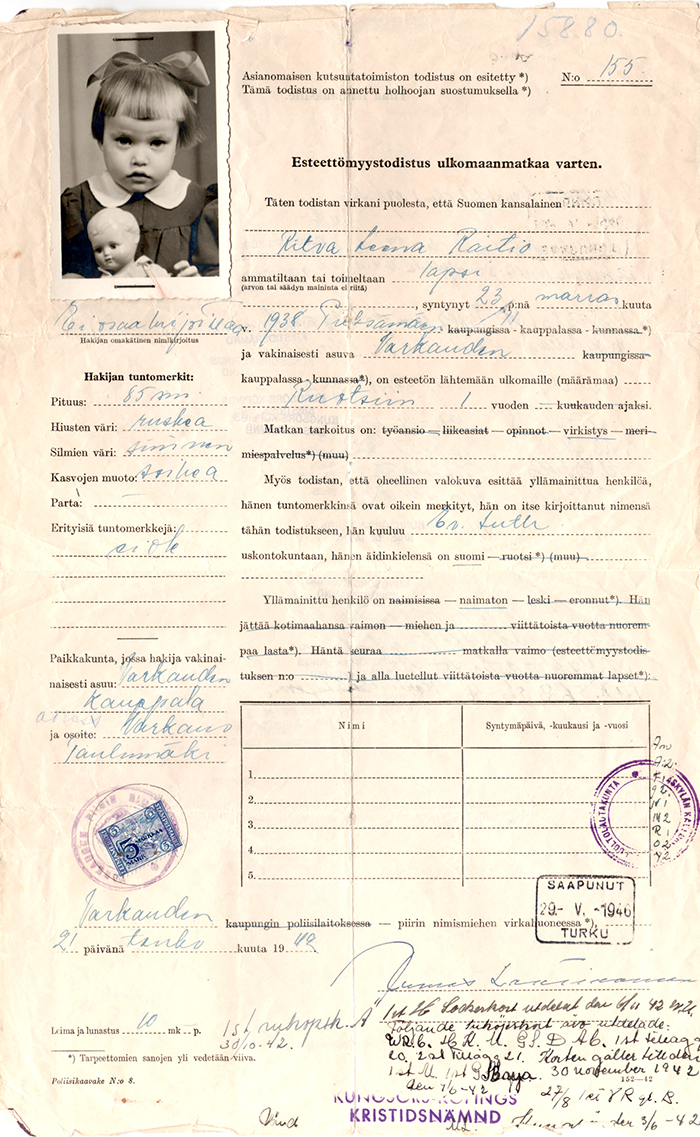 15880.
Asianomaisen kutsuntatoimiston todistus on esitetty *)
N:o 155.
Tämä todistus on annettu holhoojan suostumuksella *)
Esteettömyystodistus ulkomaanmatkaa varten.
Täten todistan virkani puolesta, että Suomen kansalainen
Ritva Leena Raitio
ammatiltaan tai toimeltaan lapsi
(arvon tai säädyn maininta ei riitä)
, syntynyt 23 p:nä marras kuuta
v. 1938 kaupungissa - kauppalassa - kunnassa *)
ja vakinaisesti asuva Varkauden kaupungissa-
kauppalassa - kunnassa*), on esteetön lähtemään ulkomaille (määrämaa)
Ruotsiin 1 vuoden — kuukauden ajaksi.
Matkan tarkoitus on: työansio — liikeasiat — opinnot — virkistys — meri-
miespalvelus*) (muu)
Myös todistan, että oheellinen valokuva esittää yllämainittua henkilöä,
hänen tuntomerkkinsä ovat oikein merkityt, hän on itse kirjoittanut nimensä
tähän todistukseen, hän kuuluu Ev. luth.
uskontokuntaan, hänen äidinkielensä on suomi — ruotsi *) (muu)
Yllämainittu henkilö on naimisissa — naimaton — leski — eronnut*). Hän
jättää kotimaahansa vaimon — miehen ja viittätoista vuotta nuorem-
paa lasta*). Häntä seuraa matkalla vaimo (esteettömyystodis-
tuksen n:o ) ja alla luetellut viittätoista vuotta nuoremmat lapset*):
Ei osaa kirjoittaa
Hakijan omakätinen nimikirjoitus
Hakijan tuntomerkit:
Pituus: 85 sm.
Hiusten väri: ruskea
Silmien väri: sininen
Kasvojen muoto: soikea
Parta: —
Erityisiä tuntomerkkejä:
ei ole
Paikkakunta, jossa hakija vakinai-
naisesti asuu: Varkauden
kauppala
ja osoite: Varkaus
Taulumäki
Nimi
Syntymäpäivä, -kuukausi ja -vuosi
1.
2.
3.
4.
5.
5
HUOLTOLAUTAKUNTA
SAAPUNUT
29. - V. - 1946
TURKU
Varkauden kaupungin poliisilaitoksessa — piirin nimismiehen virkahuoneessa *),
21 päivänä touko kuuta 1942
Leima ja lunastus 10 mk — p.
30/10-42.
*) Tarpeettomien sanojen yli vedetään viiva.
Poliisikaavake N:o 8.
1 st. H Sockerkort utdelat den 6/11 42
Följande ransonkort äro utdelade:
Korten gäller till den
30 november 1942
152—42
den 7/6-42
27/8
KUNGSÖRS KÖPINGS
KRISTIDSNÄMND
den 3/6-42